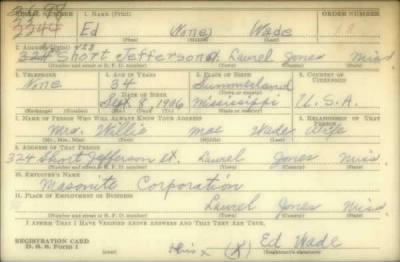 SERIAL NUMBER 1. NAME (Print) ORDER NUMBER
Ed (None) Wade
2. ADDRESS (Print) 428
324 Short Jefferson St. Laurel Jones Miss
(Number and street or R. F. D. number) (Town) (County) (State)
3. TELEPHONE 4. AGE IN YEARS 5. PLACE OF BIRTH 6. COUNTRY OF CITIZENSHIP
None 34 Summerland
DATE OF BIRTH (Town or county)
Sept 8, 1906 Mississippi U.S.A.
(Exchange) (Number) (Mo.) (Day) (Yr.) (State or country)
7. NAME OF PERSON WHO WILL ALWAYS KNOW YOUR ADDRESS 8. RELATIONSHIP OF THAT PERSON
Mrs. Willie mae Wade Wife
(Mr., Mrs., Miss) (First) (Middle) (Last)
9. ADDRESS OF THAT PERSON
324 Short Jefferson St. Laurel Jones Miss.
(Number and street or R. F. D. number) (Town) (County) (State)
10. EMPLOYER'S NAME
Masonite Corporation
11. PLACE OF EMPLOYMENT OR BUSINESS
Laurel Jones Miss
(Number and street or R. F. D. number) (Town) (County) (State)
I AFFIRM THAT I HAVE VERIFIED ABOVE ANSWERS AND THAT THEY ARE TRUE.
REGISTRATION CARD
D. S. S. Form 1 his x (X) Ed Wade
(Registrant's signature)